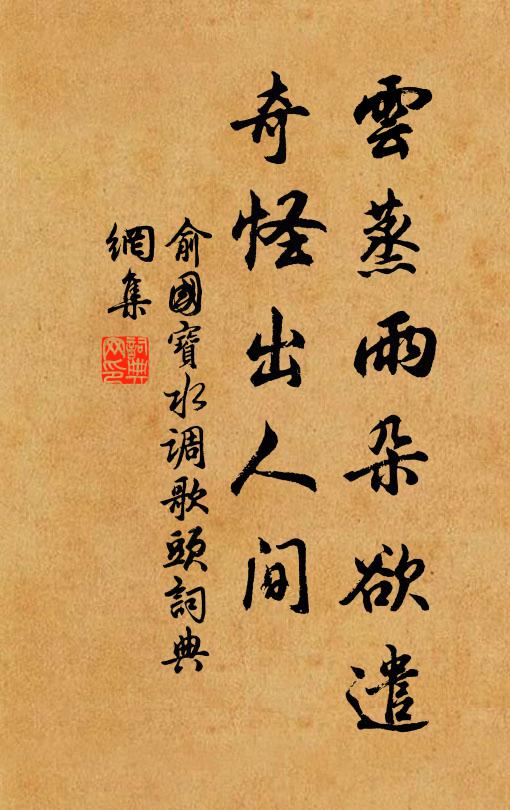 雲蒸雨朵欲遣
奇怪出人间
俞國寶水调歌頭詞典
網集
詞典
网印